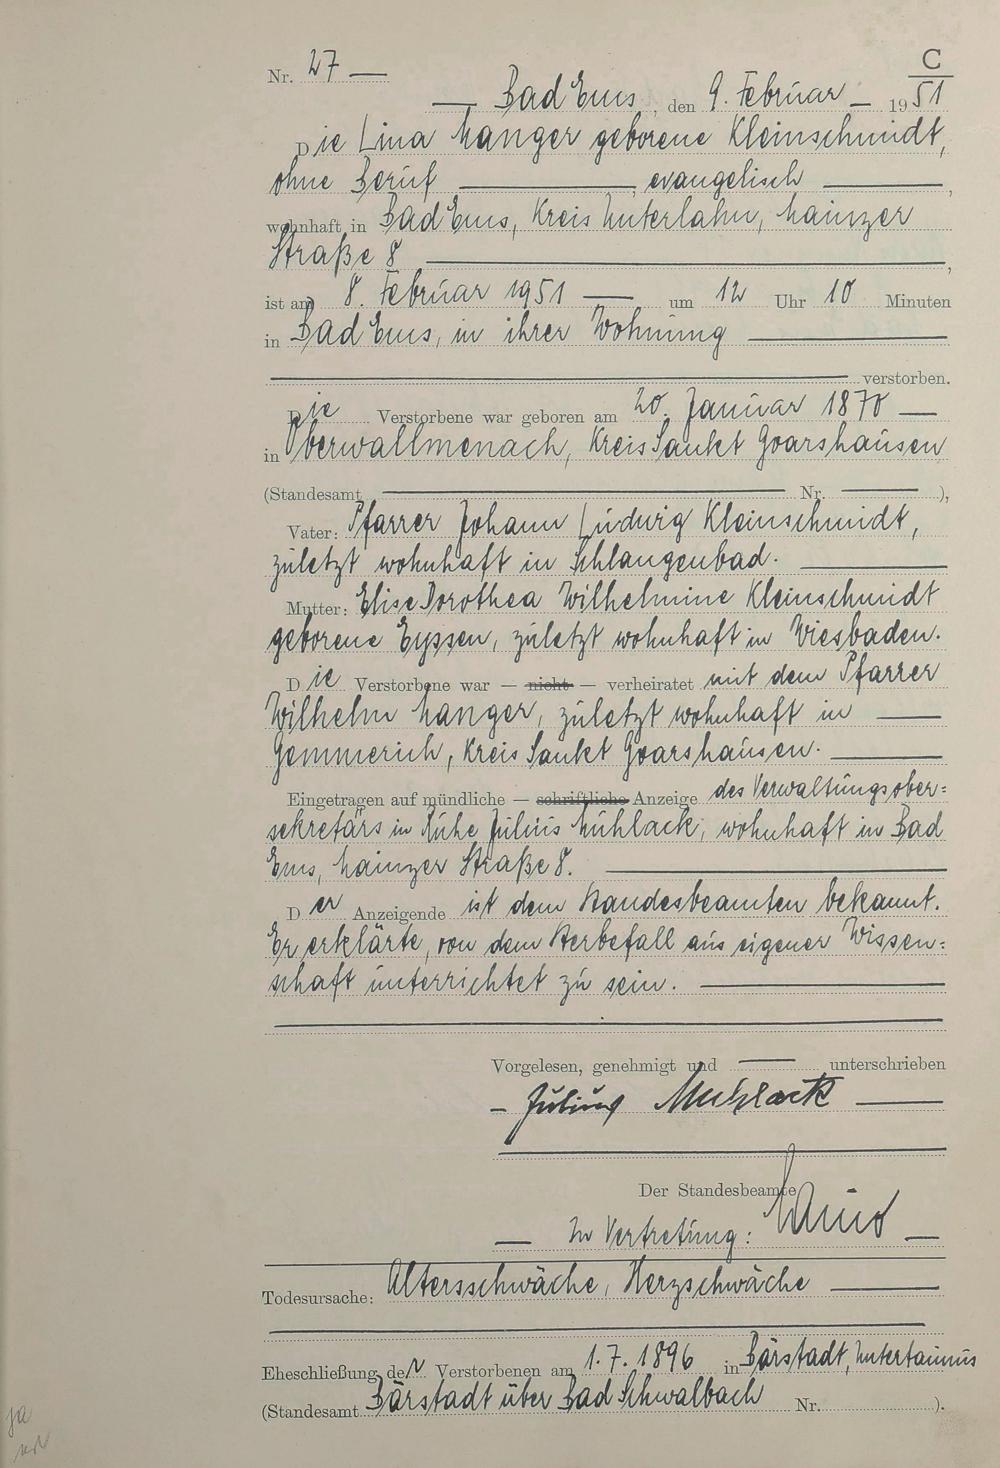 C
Nr. 27 —
— Bad Ems, den 9. Februar — 1951
Die Lina Manger geborene Kleinschmidt,
ohne Beruf —, evangelisch —,
wohnhaft in Bad Ems, Kreis Unterlahn, Mainzer
Straße 8 —,
ist am 8. Februar 1951 — um 12 Uhr 10 Minuten
in Bad Ems, in ihrer Wohnung —
— verstorben.
Die Verstorbene war geboren am 20. Januar 1870 —
in Oberwallmenach, Kreis Sankt Goarshausen
(Standesamt — Nr. — ),
Vater: Pfarrer Johann Ludwig Kleinschmidt,
zuletzt wohnhaft in Schlangenbad. —
Mutter: Elise Dorothea Wilhelmine Kleinschmidt
geborene Eyssen, zuletzt wohnhaft in Wiesbaden.
Die Verstorbene war — nicht — verheiratet mit dem Pfarrer
Wilhelm Manger, zuletzt wohnhaft in —
Gemmerich, Kreis Sankt Goarshausen. —
Eingetragen auf mündliche — schriftliche Anzeige des Verwaltungsober=
sekretärs in Ruhe Julius Muhlack, wohnhaft in Bad
Ems, Mainzer Straße 8. —
Der Anzeigende ist dem Standesbeamten bekannt.
Er erklärte, von dem Sterbefall aus eigener Wissen=
schaft unterrichtet zu sein. —
Vorgelesen, genehmigt und — unterschrieben
— Julius Muhlack —
Der Standesbeamte
— In Vertretung: —
Todesursache: Altersschwäche, Herzschwäche —
Eheschließung der Verstorbenen am 1.7.1896 in Bärstadt, Untertaunus
(Standesamt Bärstadt über Bad Schwalbach Nr. ).
ja